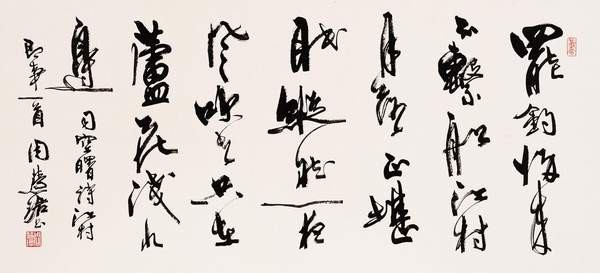 罷釣歸來
不繫船江村
月落正堪
眠縱然一夜
風吹去只在
蘆花淺水
邊
司空曙詩江村
即事一首 周慧珺书